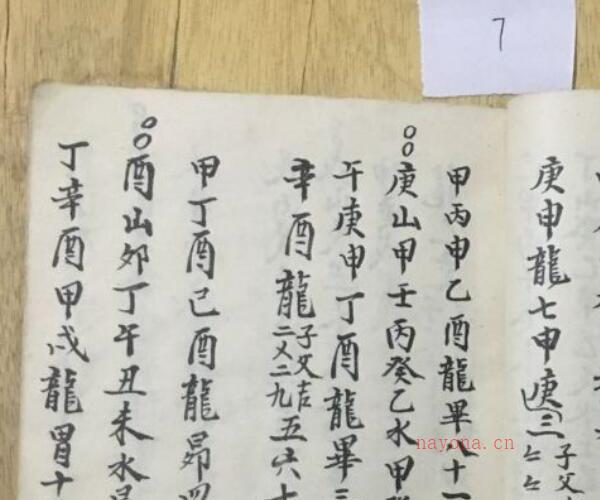 7
庚申龍七申庚三子父
甲丙申乙酉龍畢八十一
庚山甲壬丙癸乙水甲
午庚申丁酉龍畢三
辛酉龍子父吉二乂二九五六十
甲丁酉己酉龍昴四
酉山卯丁午丑未水
丁辛酉甲戌龍胃十
nayona.cn